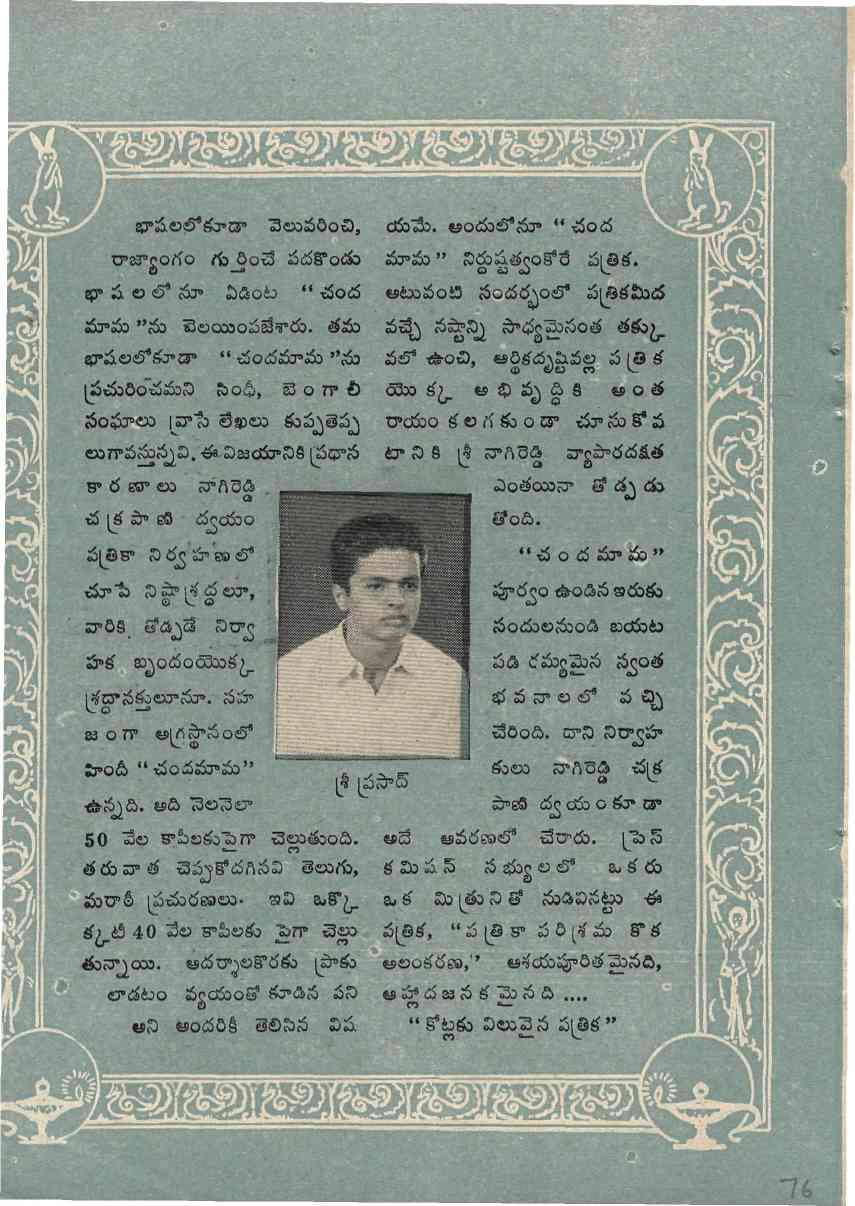 భాషలలోకూడా వెలువరించి,
రాజ్యాంగం గుర్తించే పదకొండు
భాషలలోనూ ఏడింట “చంద
మామ”ను వెలయింపజేశారు. తమ
భాషలలోకూడా “చందమామ”ను
ప్రచురించమని సింధీ, బెంగాలీ
సంఘాలు వ్రాసే లేఖలు కుప్పతెప్ప
లుగావస్తున్నవి. ఈ విజయానికి ప్రధాన
కారణాలు నాగిరెడ్డి
చక్రపాణి ద్వయం
పత్రికా నిర్వహణలో
చూపే నిష్ఠాశ్రద్ధలూ,
వారికి తోడ్పడే నిర్వా
హక బృందంయొక్క
శ్రద్ధానక్తులూనూ. సహ
జంగా అగ్రస్థానంలో
హిందీ “చందమామ”
ఉన్నది. అది నెలనెలా
50 వేల కాపీలకుపైగా చెల్లుతుంది.
తరువాత చెప్పుకోదగినవి తెలుగు,
మరాఠీ ప్రచురణలు. ఇవి ఒక్కొ
క్కటీ 40 వేల కాపీలకు పైగా చెల్లు
తున్నాయి. ఆదర్శాలకొరకు ప్రాకు
లాడటం వ్యయంతో కూడిన పని
అని అందరికీ తెలిసిన విష
యమే. అందులోనూ “చంద
మామ” నిర్దుష్టత్వంకోరే పత్రిక.
అటువంటి సందర్భంలో పత్రికమీద
వచ్చే నష్టాన్ని సాధ్యమైనంత తక్కు
వలో ఉంచి, ఆర్థికదృష్టివల్ల పత్రిక
యొక్క అభివృద్ధికి అంత
రాయం కలగకుండా చూసుకోవ
టానికి శ్రీ నాగిరెడ్డి వ్యాపారదక్షత
ఎంతయినా తోడ్పడు
తోంది.
“చందమామ”
పూర్వం ఉండిన ఇరుకు
సందులనుండి బయట
పడి రమ్యమైన స్వంత
భవనాలలో వచ్చి
చేరింది. దాని నిర్వాహ
కులు నాగిరెడ్డి చక్ర
పాణి ద్వయంకూడా
అదే ఆవరణలో చేరారు. ప్రెస్
కమిషన్ సభ్యులలో ఒకరు
ఒక మిత్రునితో నుడివినట్టు ఈ
పత్రిక, “పత్రికా పరిశ్రమ కొక
అలంకరణ,” ఆశయపూరితమైనది,
ఆహ్లాదజనకమైనది ....
“కోట్లకు విలువైన పత్రిక”
శ్రీ ప్రసాద్
76